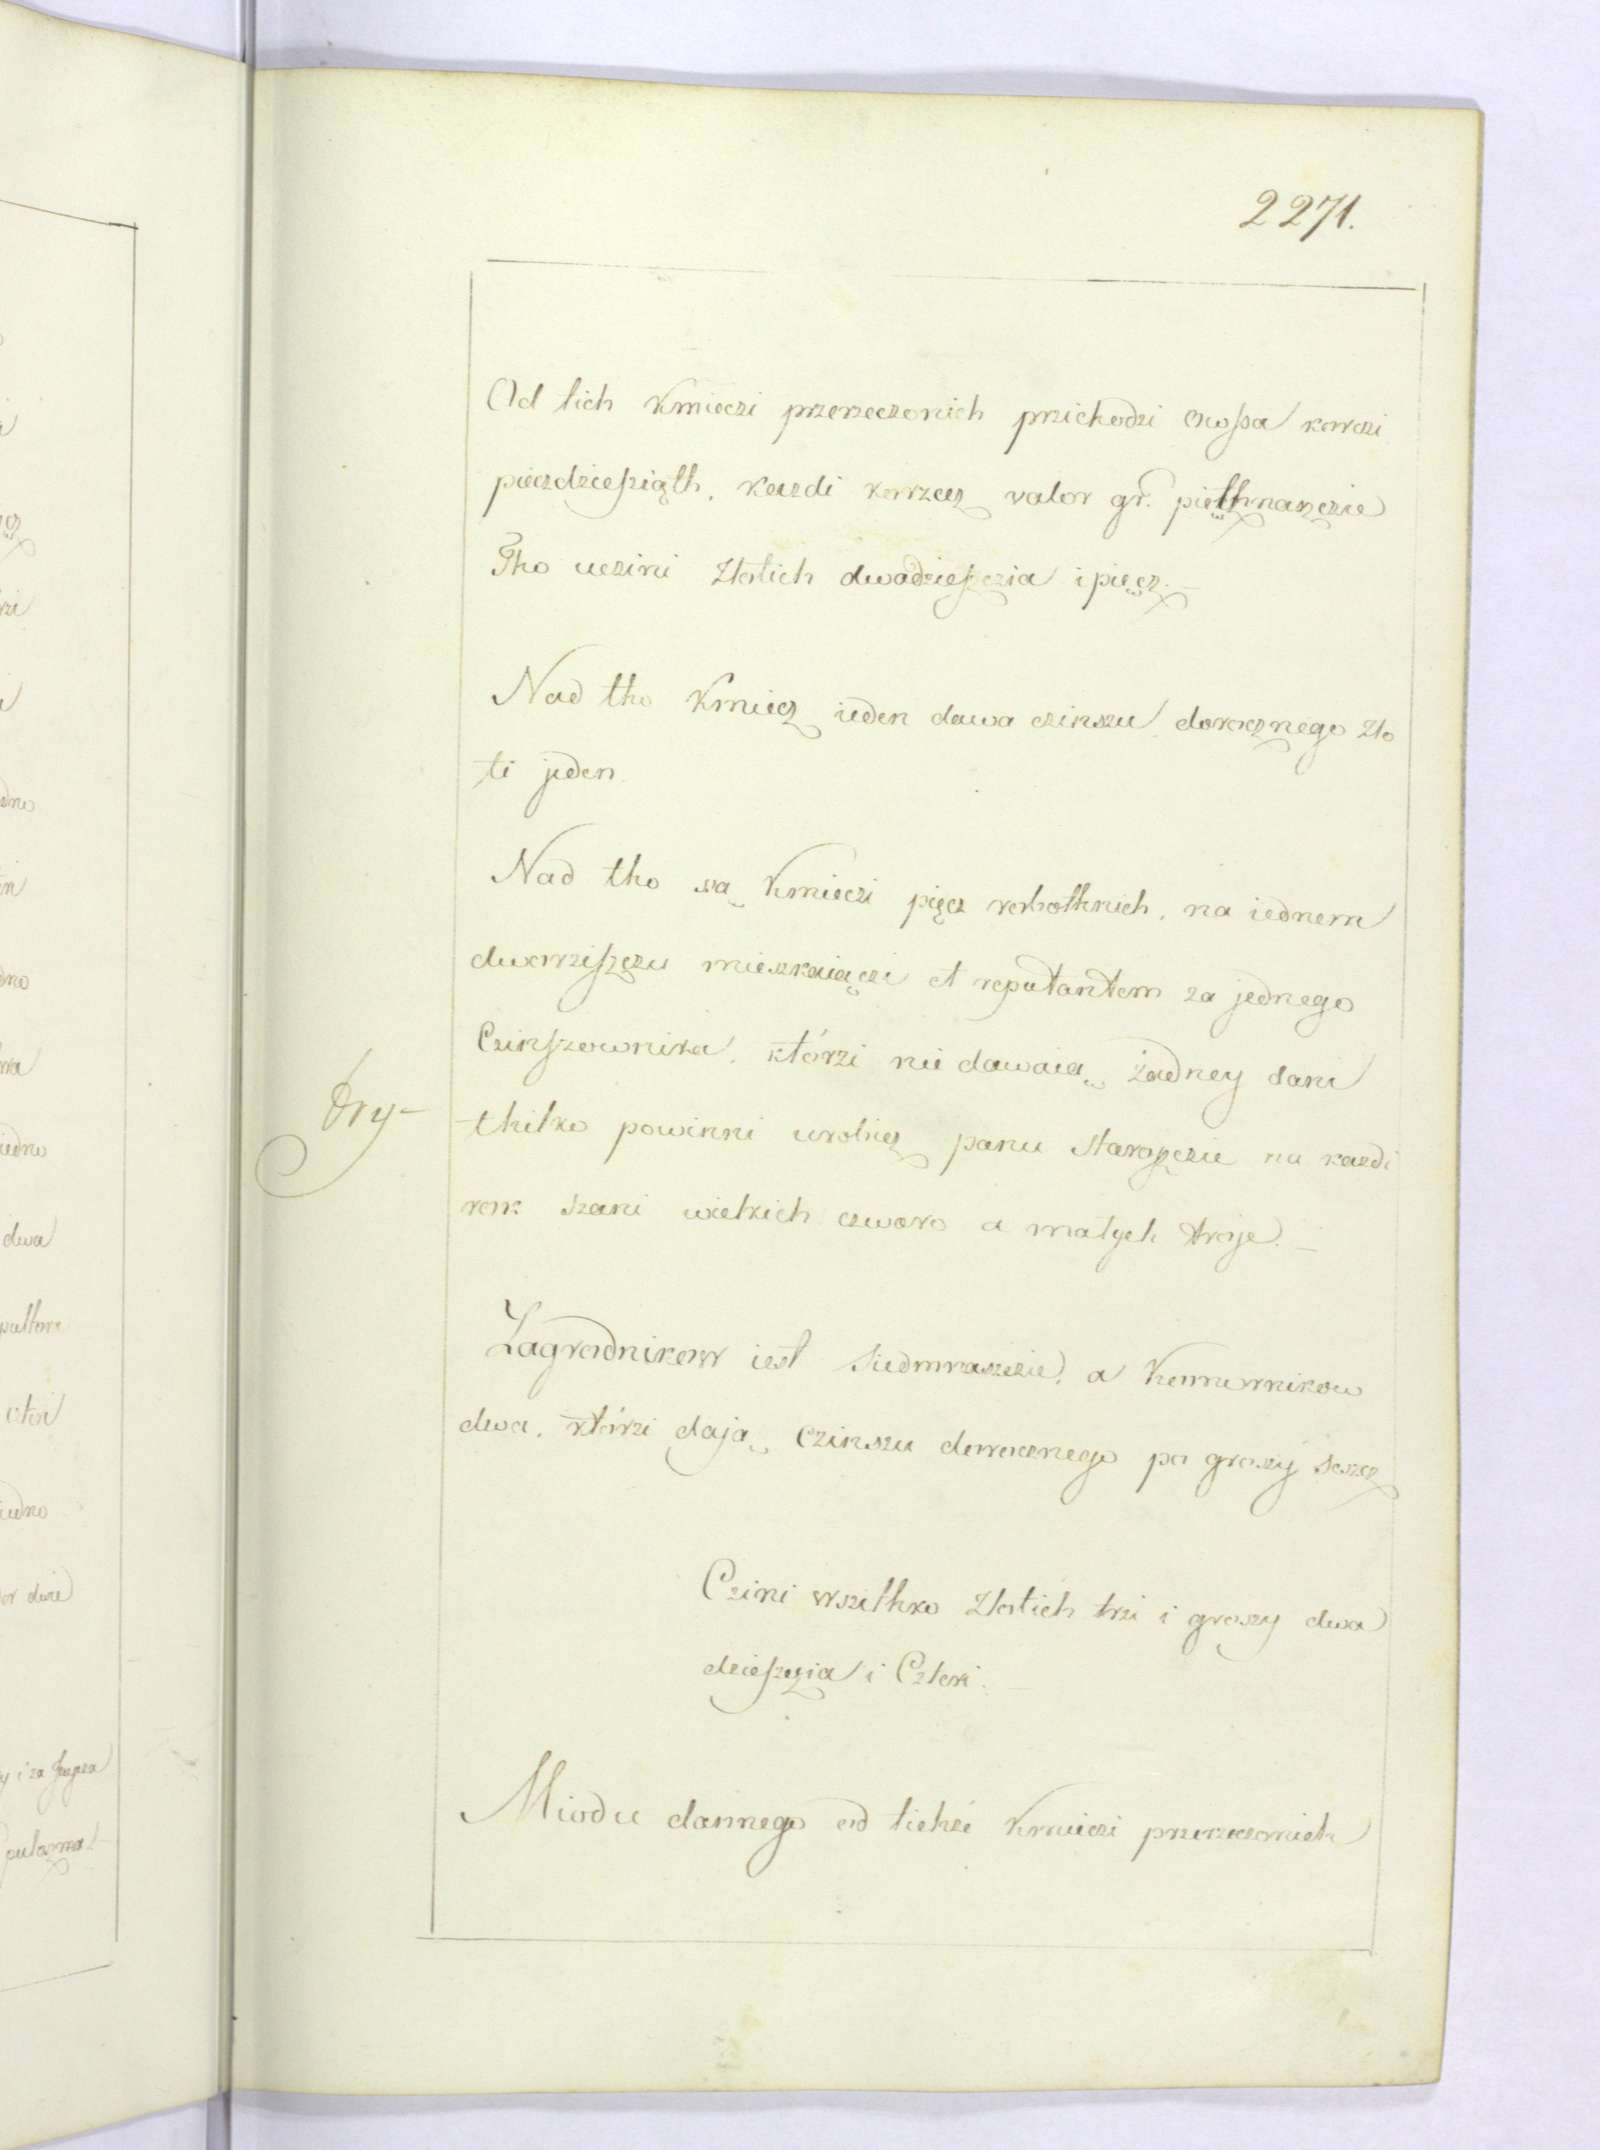 2271.
Od tich Kmieczi przerzeczonich przichodzi owsza korczi
pieczdziesziąth, kazdi korzecz valor gr. pięthnasczie
Tho uczini złotich dwadziesczia i pięcz.
Nad tho Kmiecz ieden dawa czinszu dorocznego zło
ti jeden.
Nad tho są Kmieczi pięcz robothnich, na iednem
dworziszczu mieszkaiączi et reputantem za jednego
Czinszownika, którzi nie dawaią żadney dani
thilko powinni urobicz panu starosczie na kazdi
rok szani wielkich czworo a małych troje.
Zagrodnikow iest siedmnasczie, a Komornikow
dwa, którzi dają Czinszu dorocznego po groszy sescz
Czini wszithko złotich trzi i groszy dwa
dziesczia i Czteri.
Miodu dannego od tichże Kmieczi przerzeczonich